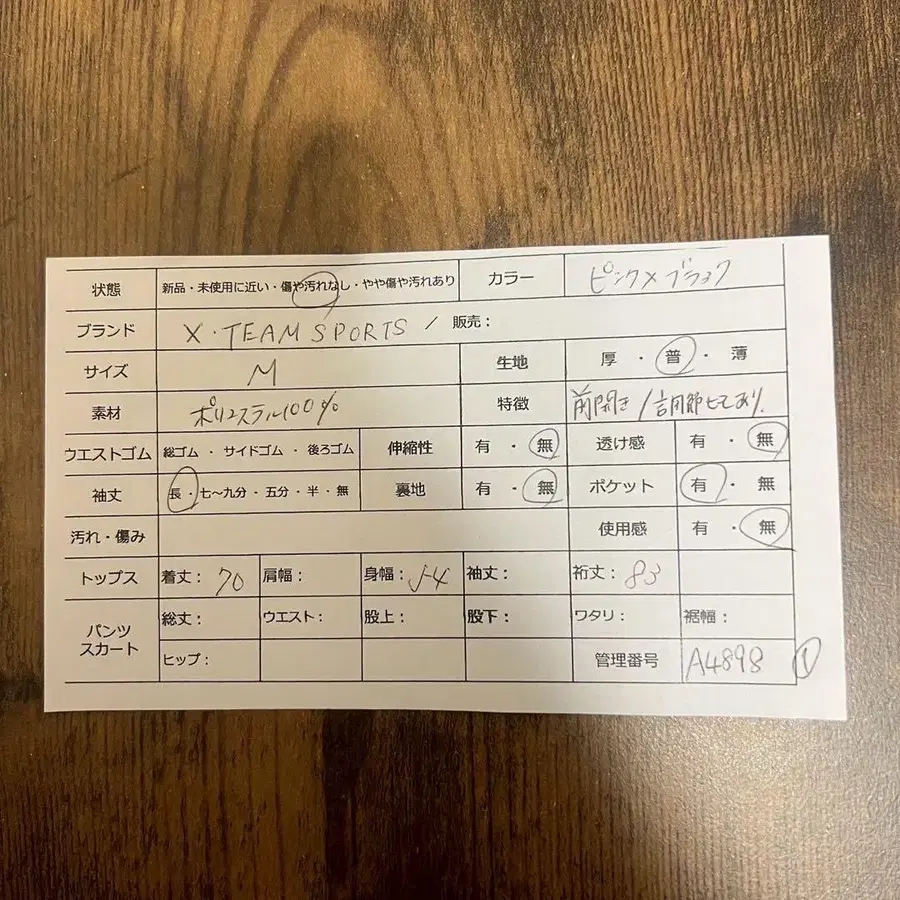 状態 新品・未使用に近い・傷や汚れなし・やや傷や汚れあり カラー ピンク×ブラック
ブランド X・TEAM SPORTS / 販売：
サイズ M 生地 厚・普・薄
素材 ポリエステル100% 特徴 前開き/調節ヒモあり
ウエストゴム 総ゴム・サイドゴム・後ろゴム 伸縮性 有・無 透け感 有・無
袖丈 長・七〜九分・五分・半・無 裏地 有・無 ポケット 有・無
汚れ・傷み 使用感 有・無
トップス 着丈：70 肩幅： 身幅：54 袖丈： 裄丈：83
パンツ スカート 総丈： ウエスト： 股上： 股下： ワタリ： 裾幅：
ヒップ： 管理番号 A4898 1